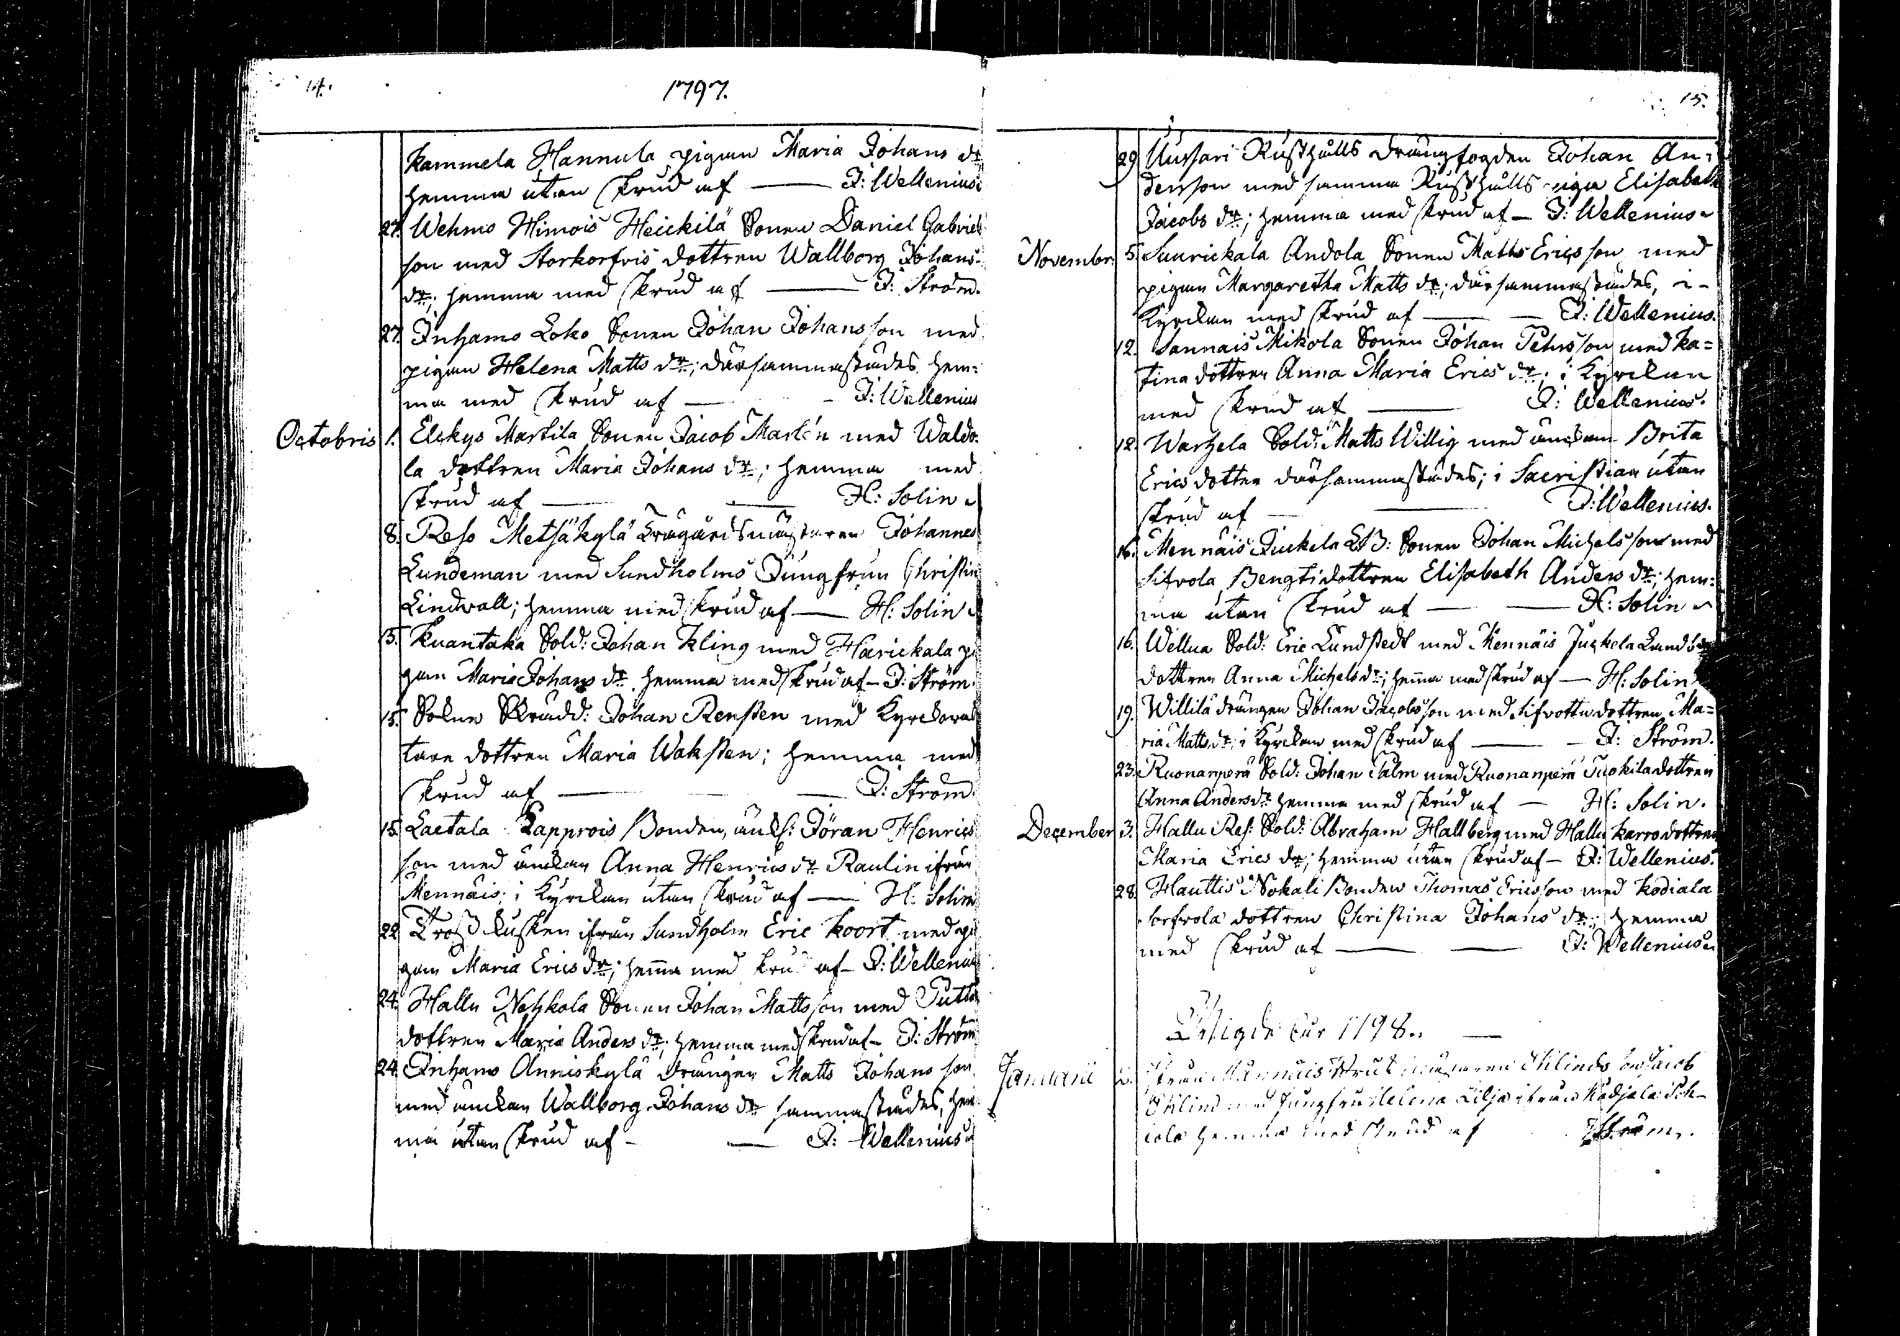 14.
1797.
kammela Hannula pigan Maria Johans dr
hemma utan skrud af — J: Wellenius
27. Wehmo Himois Heickilä Sonen Daniel Gabriels
son med Storkorfvis dottren Wallborg Johans
dr; hemma med skrud af — J: Ström.
27. Inhamo Loko Sonen Johan Johansson med
pigan Helena Matts dr; därsammastädes hem:
ma med skrud af — J: Wellenius
Octobris 1. Elckyo Martila Sonen Jacob Martén med Waldo
la dottren Maria Johans dr; hemma med
skrud af — H: Solin
8. Reso Metsäkylä Trägårdsmästaren Johannes
Lundeman med Sundholms Jungfrun Christin
Lindwall; hemma med skrud af — H: Solin
15. Kuantaka Sold: Johan Kling med Harickala pi
gan Maria Johans dr hemma med skrud af — J: Ström.
15. Sokne Skrädd: Johan Rensten med Kyrckovak
tare dottren Maria Waksten; hemma med
skrud af — J: Ström.
15. Laetala Lapprois Bonden, änkl: Jöran Henrics
son med änckan Anna Henrics dr Raulin ifrån
Mennäis; i Kyrckan utan skrud af — H: Solin
22. Tross kusken ifrån Sundholm Eric Koort med pi
gan Maria Erics dr; hemma med skrud af — J: Wellenius
24. Hallu Nehkola Sonen Johan Mattsson med Tutto
dottren Maria Anders dr; hemma med skrud af — J: Ström
24. Inhamo Anniskylä drängen Matts Johansson
med änckan Wallborg Johans dr sammastädes, hem
ma utan skrud af — J: Wellenius
15.
29. Uussari Rusthålls drängfogden Johan An:
dersson med samma Rusthålls piga Elisabeth
Jacobs dr; hemma med skrud af — J: Wellenius
Novembr. 5. Saurickala Andola Sonen Matts Ericsson med
pigan Margaretha Matts dr; därsammastädes, i
Kyrckan med skrud af — J: Wellenius.
12. Sannais Mikola Sonen Johan Pehrsson med Ka=
tina dottren Anna Maria Erics dr; i Kyrckan
med skrud af — J: Wellenius.
12. Warhela Sold: Matts Willig med änckan Brita
Erics dotter därsammastädes; i Sacristian utan
skrud af — J: Wellenius.
16. Mennäis Juckela Sonen Johan Michelsson med
Sifvola Bengtidottren Elisabeth Anders dr; hem:
ma utan skrud af — H: Solin
16. Wellua Sold: Eric Lundstedt med Mennäis Juckela
dottren Anna Michels dr; hemma med skrud af — H: Solin
19. Willilä drängen Johan Jacobsson med Sifvottu dottren Ma=
ria Matts dr; i Kyrckan med skrud af — J: Ström.
23. Ruonanperä Sold: Johan Palm med Ruonanperä Tuokila dottren
Anna Anders dr hemma med skrud af — H: Solin.
December 3. Hallu Res: Sold: Abraham Hallberg med Hallu Karro dottren
Maria Erics dr; hemma utan skrud af — J: Wellenius.
28. Hauttis Nokali Bonden Thomas Ericsson med Kodiala
dottren Christina Johans dr; hemma
med skrud af — J: Wellenius
Wigde för 1798.
Januarii Jacob
Ihlind med Jungfru Helena Lilja ifrån Kodjala
hemma med skrud af Ström.